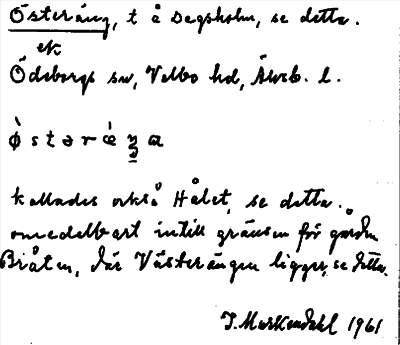 Österäng, t å Dagsholm, se detta.
ek
Ödeborgs sn, Valbo hd, Älvsb. l.
ø̀ s t ə r æ̀ ŋ a
kallades också Hålet, se detta.
omedelbart intill gränsen för gården
Bråten, där Västerängen ligger, se detta.
J. Markendahl 1961